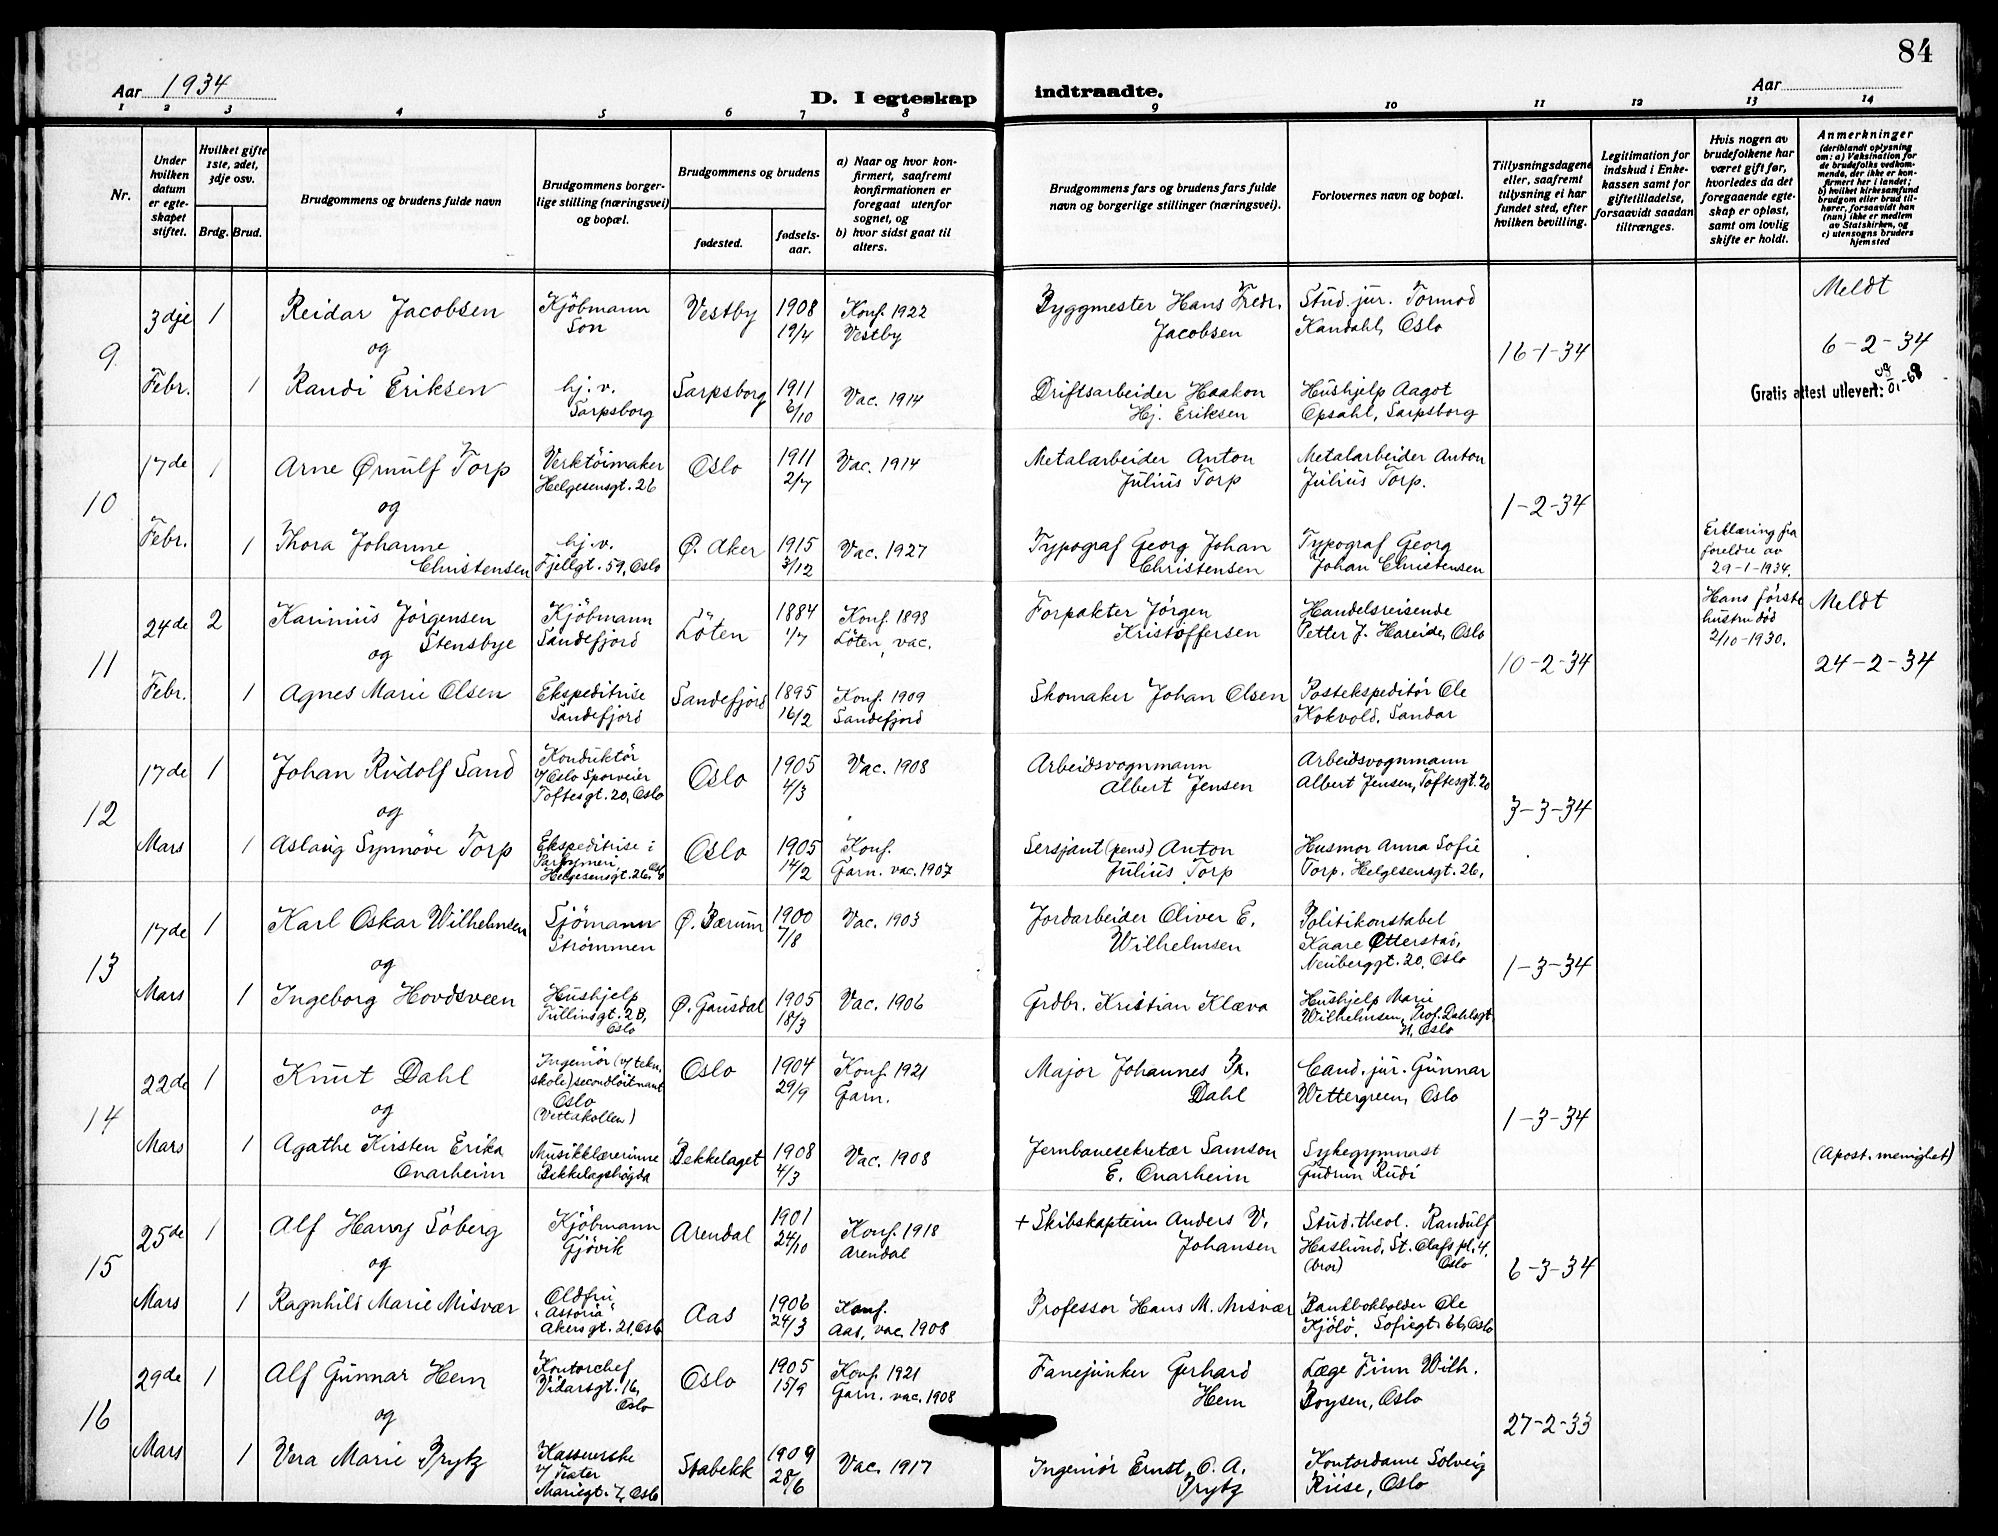 84
Aar 1934
D. I egteskap indtraadte.
Aar
1 2 3 4 5 6 7 8 9 10 11 12 13 14
Nr.
Under hvilken datum er egteskapet stiftet.
Hvilket gifte 1ste, 2det, 3dje osv.
Brdg. Brud.
Brudgommens og brudens fulde navn
Brudgommens borgerlige stilling (næringsvei) og bopæl.
Brudgommens og brudens
fødested.
fødselsaar.
a) Naar og hvor konfirmert, saafremt konfirmationen er foregaat utenfor sognet, og
b) hvor sidst gaat til alters.
Brudgommens fars og brudens fars fulde navn og borgerlige stillinger (næringsvei).
Forlovernes navn og bopæl.
Tillysningsdagene eller, saafremt tillysning ei har fundet sted, efter hvilken bevilling.
Legitimation for indskud i Enkekassen samt for giftetilladelse, forsaavidt saadan tiltrænges.
Hvis nogen av brudefolkene har været gift før, hvorledes da det foregaaende egteskap er opløst, samt om lovlig skifte er holdt.
Anmerkninger
(deriblandt oplysning om: a) Vaksination for de brudefolks vedkommende, der ikke er konfirmert her i landet; b) hvilket kirkesamfund brudgom eller brud tilhører, forsaavidt han (hun) ikke er medlem av Statskirken, og c) utensogns bruders hjemsted
9
3dje Febr.
1 Reidar Jacobsen
Kjöbmann
Son
Vestby
1908
19/4
Konf. 1922
Vestby
Byggmester Hans Fredr.
Jacobsen
Stud. jur. Tormod
Kandahl, Oslo
16-1-34
Meldt
6-2-34
og
1 Randi Eriksen
hj. v.
Sarpsborg
Sarpsborg
1911
6/10
Vac. 1914
Driftsarbeider Haakon
Hj. Eriksen
Hushjelp Aagot
Opsahl, Sarpsborg
Gratis attest utlevert:
10
17de Febr.
1 Arne Ørnulf Torp
Verktöimaker
Helgesensgt. 26
Oslo
1911
2/7
Vac. 1914
Metalarbeider Anton
Julius Torp
Metalarbeider Anton
Julius Torp.
1-2-34
og
1 Thora Johanne
Christensen
hj. v.
Fjellgt. 59, Oslo
Ø. Aker
1915
3/12
Vac. 1927
Typograf Georg Johan
Christensen
Typograf Georg
Johan Christensen
Erklæring fra
foreldre av
29-1-1934.
11
24de Febr.
2 Karinius Jörgensen
Stensbye
og
Kjöbmann
Sandefjord
Löten
1884
1/7
Konf. 1898
Löten, vac.
Forpakter Jörgen
Kristoffersen
Handelsreisende
Petter J. Hareide, Oslo
10-2-34
Hans förste
hustru död
2/10-1930.
Meldt
24-2-34
1 Agnes Marie Olsen
Ekspeditrise
Sandefjord
Sandefjord
1895
16/2
Konf. 1909
Sandefjord
Skomaker Johan Olsen
Postekspeditör Ole
Kokvold, Sandar
12
17de Mars
1 Johan Rudolf Sand
Konduktör
v/ Oslo Sporveier
Toftesgt. 20, Oslo
Oslo
1905
4/3
Vac. 1908
Arbeidsvognmann
Albert Jensen
Arbeidsvognmann
Albert Jensen, Toftesgt. 20
3-3-34
og
1 Aslaug Synnöve Torp
Ekspeditrise i
Parfymeri
Helgesensgt. 26, Oslo
Oslo
1905
14/2
Konf.
Garn. vac. 1907
Sersjant (pens) Anton
Julius Torp
Husmor Anna Sofie
Torp, Helgesensgt. 26,
13
17de Mars
1 Karl Oskar Wilhelmsen
Sjömann
Strömmen
Ø. Bærum
1900
7/8
Vac. 1903
Jordarbeider Oliver E.
Wilhelmsen
Politikonstabel
Kaare Otterstad,
Neuberggt. 20, Oslo
1-3-34
og
1 Ingeborg Hovdsveen
Hushjelp
Tullinsgt. 2B,
Oslo
Ø. Gausdal
1905
18/3
Vac. 1906
Grdbr. Kristian Klæva
Hushjelp Marie
Wilhelmsen, Prof. Dahlsgt.
Oslo
14
22de Mars
1 Knut Dahl
Ingeniör (v/ tekn.
skole) secondlöitnant
Oslo
(Vettakollen)
Oslo
1904
29/9
Konf. 1921
Garn.
Major Johannes Fr.
Dahl
Cand. jur. Gunnar
Wettergreen, Oslo
1-3-34
og
1 Agathe Kirsten Erika
Onarheim
Musikklærerinne
Bekkelagshögda
Bekkelaget
1908
4/3
Vac. 1908
Jernbanesekretær Samson
E. Onarheim
Sykegymnast
Gudrun Rudi
(Apost. menighet)
15
25de Mars
1 Alf Harry Söberg
Kjöbmann
Gjövik
Arendal
1901
24/10
Konf. 1918
Arendal
+ Skibskaptein Anders V.
Johansen
Stud. theol. Randulf
Haslund, St. Olafs pl. 4,
(bror) Oslo
6-3-34
og
1 Ragnhild Marie Misvær
Oldfru
"Astoria"
Akersgt. 21, Oslo
Aas
1906
24/3
Konf.
Aas, vac. 1908
Professor Hans M. Misvær
Bankbokholder Ole
Kjölö, Sofiegt. 66, Oslo
16
29de Mars
1 Alf Gunnar Hem
Kontorchef
Vidarsgt. 16,
Oslo
Oslo
1905
15/9
Konf. 1921
Garn. vac. 1908
Fanejunker Gerhard
Hem
Læge Finn Wilh.
Boysen, Oslo
27-2-33
og
1 Vera Marie Prytz
Kasserske
v/ Teater
Mariegt. 7, Oslo
Stabekk
1909
28/6
Vac. 1917
Ingeniör Ernst O. A.
Prytz
Kontordame Solveig
Riise, Oslo